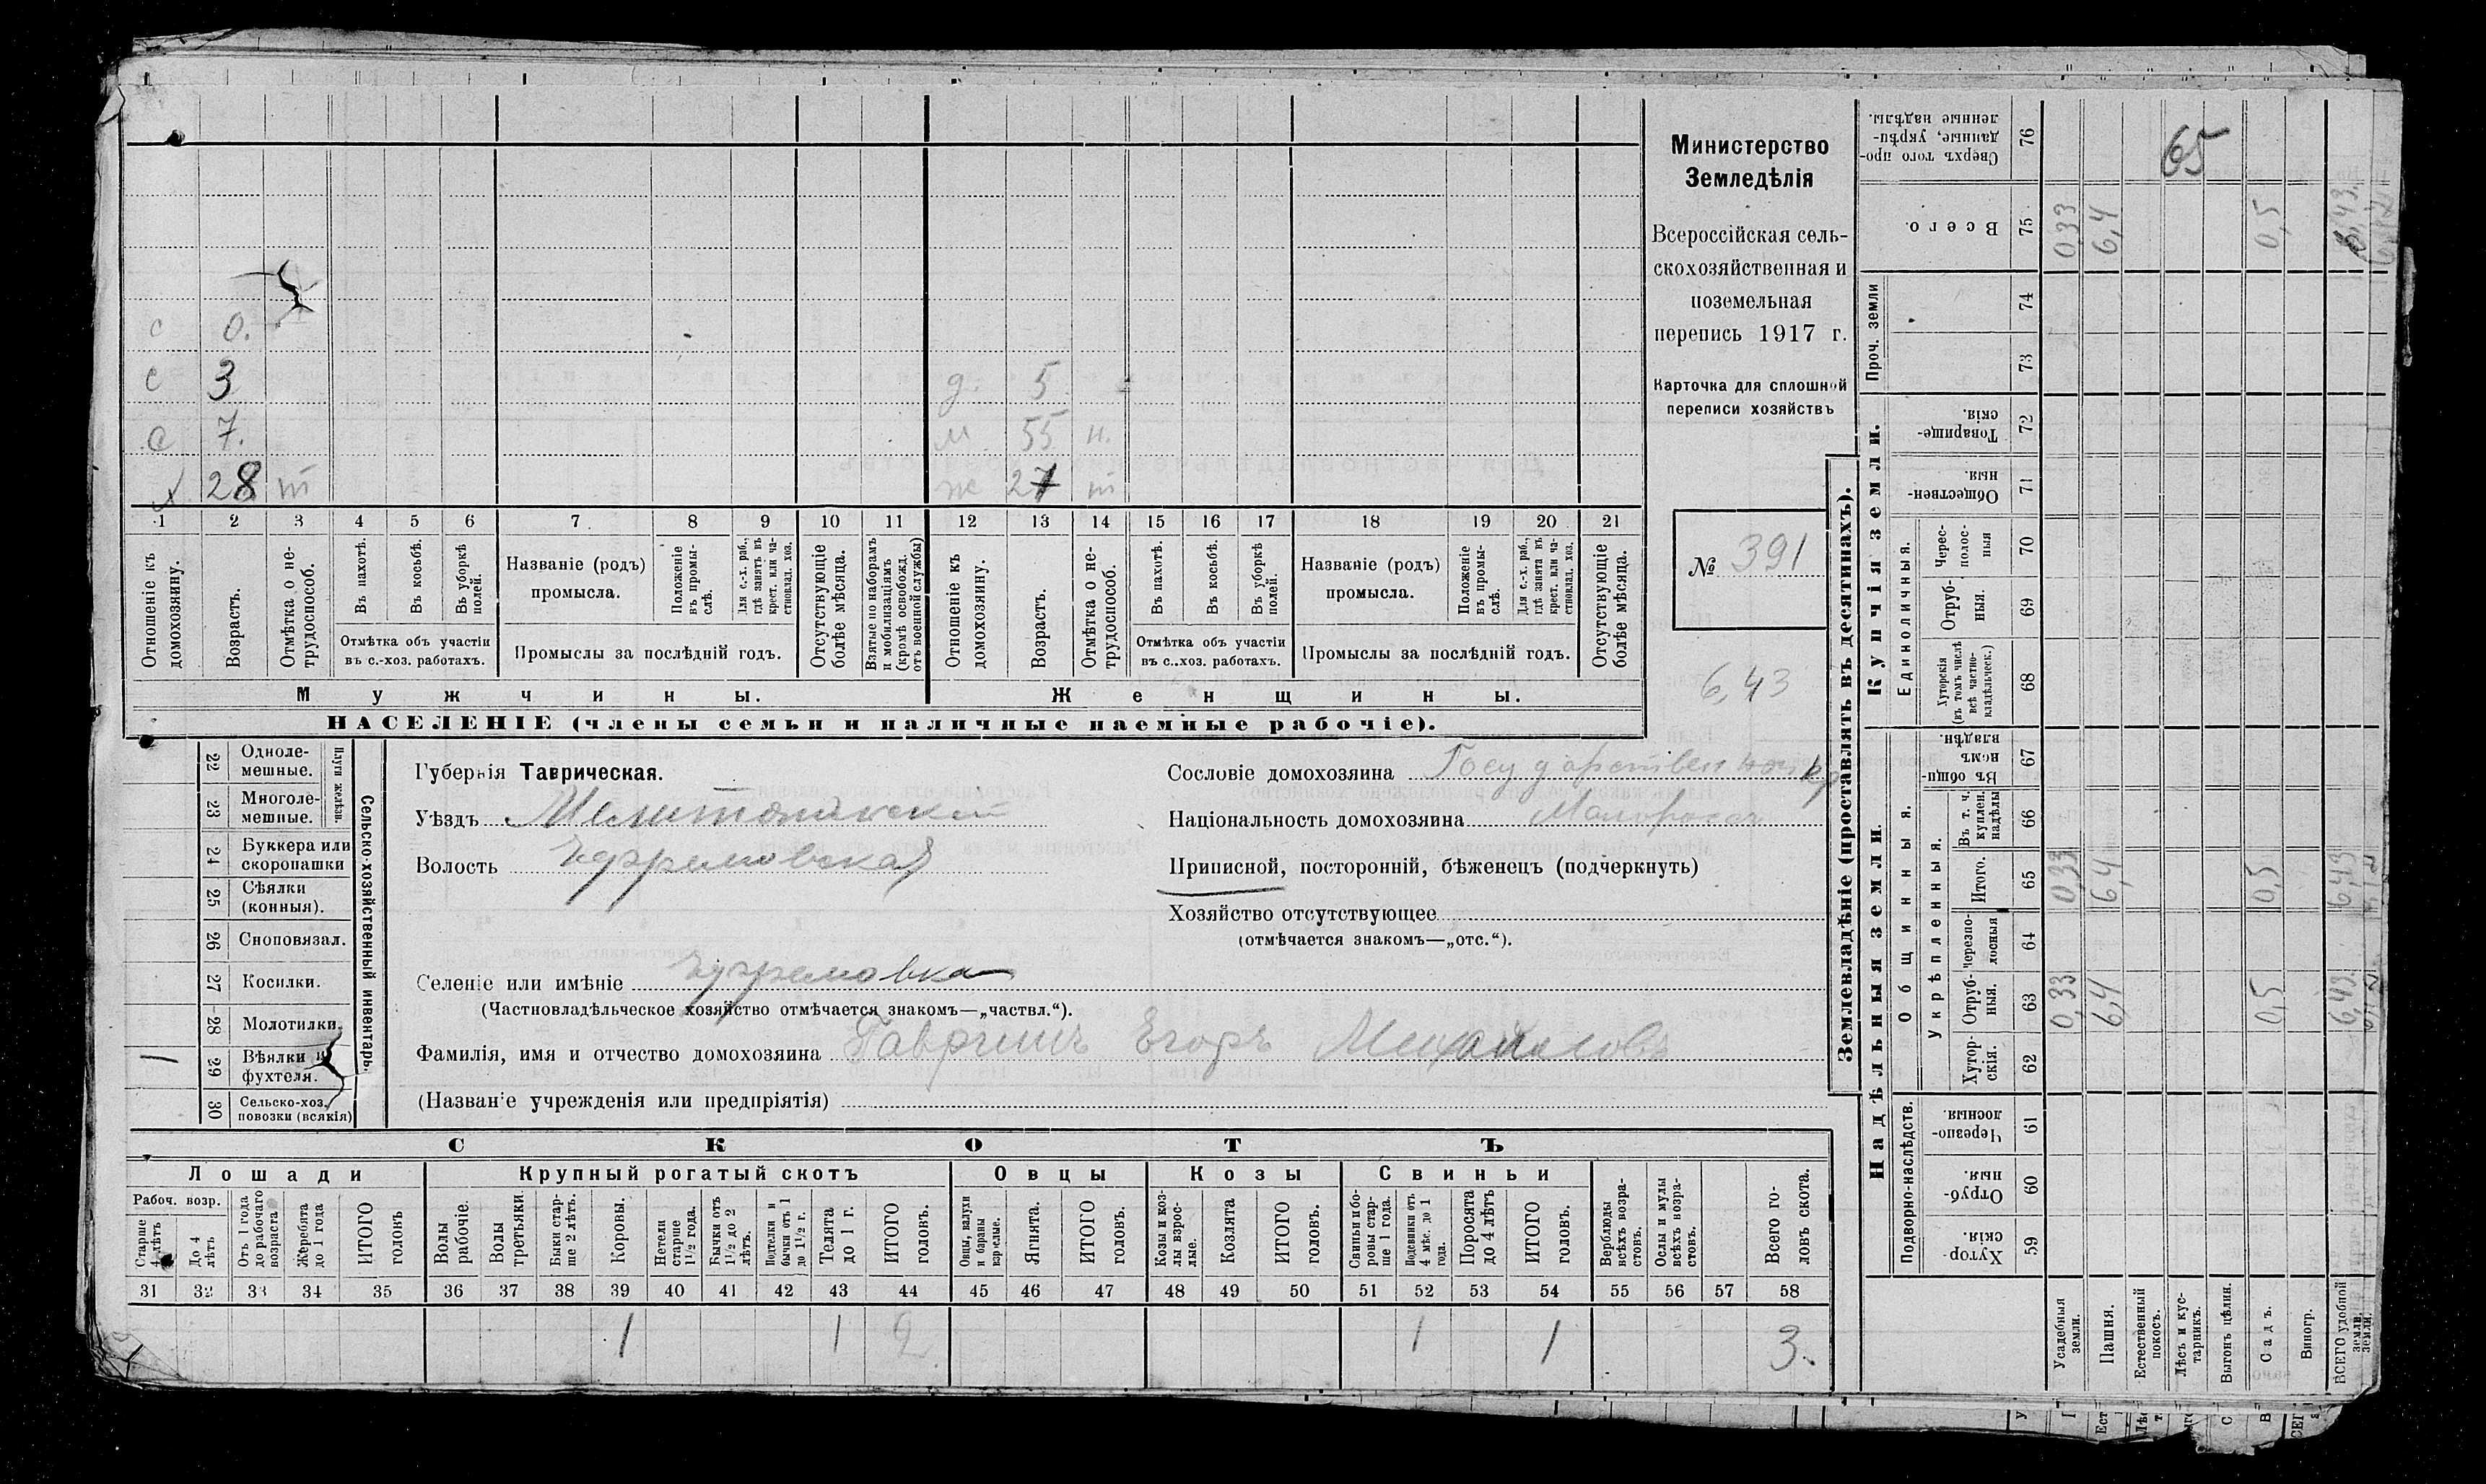 с 0.
с 3 д. 5
с 7. м 55 н.
х 28 т ж 27 т
1 2 3 4 5 6 7 8 9 10 11 12 13 14 15 16 17 18 19 20 21
Отношеніе къ домохозяину.
Возрастъ.
Отмѣтка о не-трудоспособ.
Въ пахотѣ.
Въ косьбѣ.
Въ уборкѣ полей.
Отмѣтка объ участіи
въ с.-хоз. работахъ.
Названіе (родъ)
промысла.
Положеніе въ промы-слѣ.
Для с.-х. раб., гдѣ занятъ въ крест. или ча-стновлад. хоз.
Промыслы за послѣдній годъ.
Отсутствующіе болѣе мѣсяца.
Взятые по наборамъ и мобилизаціямъ (кромѣ освобожд. отъ военной службы)
Отношеніе къ домохозяину.
Возрастъ.
Отмѣтка о не-трудоспособ.
Въ пахотѣ.
Въ косьбѣ.
Въ уборкѣ полей.
Отмѣтка объ участіи
въ с.-хоз. работахъ.
Названіе (родъ)
промысла.
Положеніе въ промы-слѣ.
Для с.-х. раб., гдѣ занята въ крест. или ча-стновлад. хоз.
Промыслы за послѣдній годъ.
Отсутствующіе болѣе мѣсяца.
Мужчины. Женщины.
НАСЕЛЕНІЕ (члены семьи и наличные наемные рабочіе).
Министерство
Земледѣлія
Всероссійская сель-
скохозяйственная и
поземельная
перепись 1917 г.
Карточка для сплошной
переписи хозяйствъ
№ 391
6,43
Сельско-хозяйственный инвентарь.
Плуги желѣзн.
22 Одноле-мешные.
23 Многоле-мешные.
24 Буккера или скоропашки
25 Сѣялки (конныя).
26 Сноповязал.
27 Косилки.
28 Молотилки.
29 Вѣялки и фухтеля.
30 Сельско-хоз. повозки (всякія)
Губернія Таврическая.
Уѣздъ Мелитопольскій
Волость Ефремовская
Селеніе или имѣніе Ефремовка
(Частновладѣльческое хозяйство отмѣчается знакомъ—„частвл.“).
Фамилія, имя и отчество домохозяина Гавришъ Егоръ Михайловъ
(Названіе учрежденія или предпріятія)
Сословіе домохозяина Государственный кр
Національность домохозяина Малороссъ
Приписной, посторонній, бѣженецъ (подчеркнуть)
Хозяйство отсутствующее
(отмѣчается знакомъ—„отс.“).
СКОТЪ
Лошади Крупный рогатый скотъ Овцы Козы Свиньи
Рабоч. возр.
Старше 4 лѣтъ
До 4 лѣтъ
Отъ 1 года до рабочаго возраста
Жеребята до 1 года
ИТОГО головъ
Волы рабочіе.
Волы третьяки.
Быки стар-ше 2 лѣтъ.
Коровы.
Нетели старше 1½ года.
Бычки отъ 1½ до 2 лѣтъ.
Подтелки и бычки отъ 1 до 1½ г.
Телята до 1 г.
ИТОГО головъ.
Овцы, валухи и бараны взрослые.
Ягнята.
ИТОГО головъ.
Козы и коз-лы взрос-лые.
Козлята
ИТОГО головъ.
Свиньи и бо-ровы стар-ше 1 года.
Подсвинки отъ 4 мѣс. до 1 года.
Поросята до 4 лѣтъ
ИТОГО головъ.
Верблюды всѣхъ возра-стовъ.
Ослы и мулы всѣхъ возра-стовъ.
Всего го-ловъ скота.
31 32 33 34 35 36 37 38 39 40 41 42 43 44 45 46 47 48 49 50 51 52 53 54 55 56 57 58
1 1 2 1 1 3.
Землевладѣніе (проставлять въ десятинахъ).
Надѣльныя земли. Купчія земли.
Проч. земли
Подворно-наслѣдств.
Общинныя.
Укрѣпленныя.
Единоличныя.
59 Хутор-скія.
60 Отруб-ныя.
61 Черезпо-лосныя
62 Хутор-скія.
63 Отруб-ныя.
64 Черезпо-лосныя
65 Итого.
66 Въ т. ч. куплен. надѣлы
67 Въ общи-номъ владѣн.
68 Хуторскія (въ томъ числѣ всѣ частно-владѣльческ.)
69 Отруб-ныя.
70 Черес-полос-ныя
71 Обществен-ныя.
72 Товарище-скія.
73
74
75 Всего.
76 Сверхъ того про-данные, укрѣп-ленные надѣлы.
65
Усадебныя земли. 0,33 0,33 0,33
Пашня. 6,4 6,4 6,4
Естественный покосъ.
Лѣсъ и кус-тарникъ.
Выгонъ цѣлин.
Садъ. 0,5 0,5 0,5
Виногр.
ВСЕГО удобной земли. 6,43 6,43 6,43